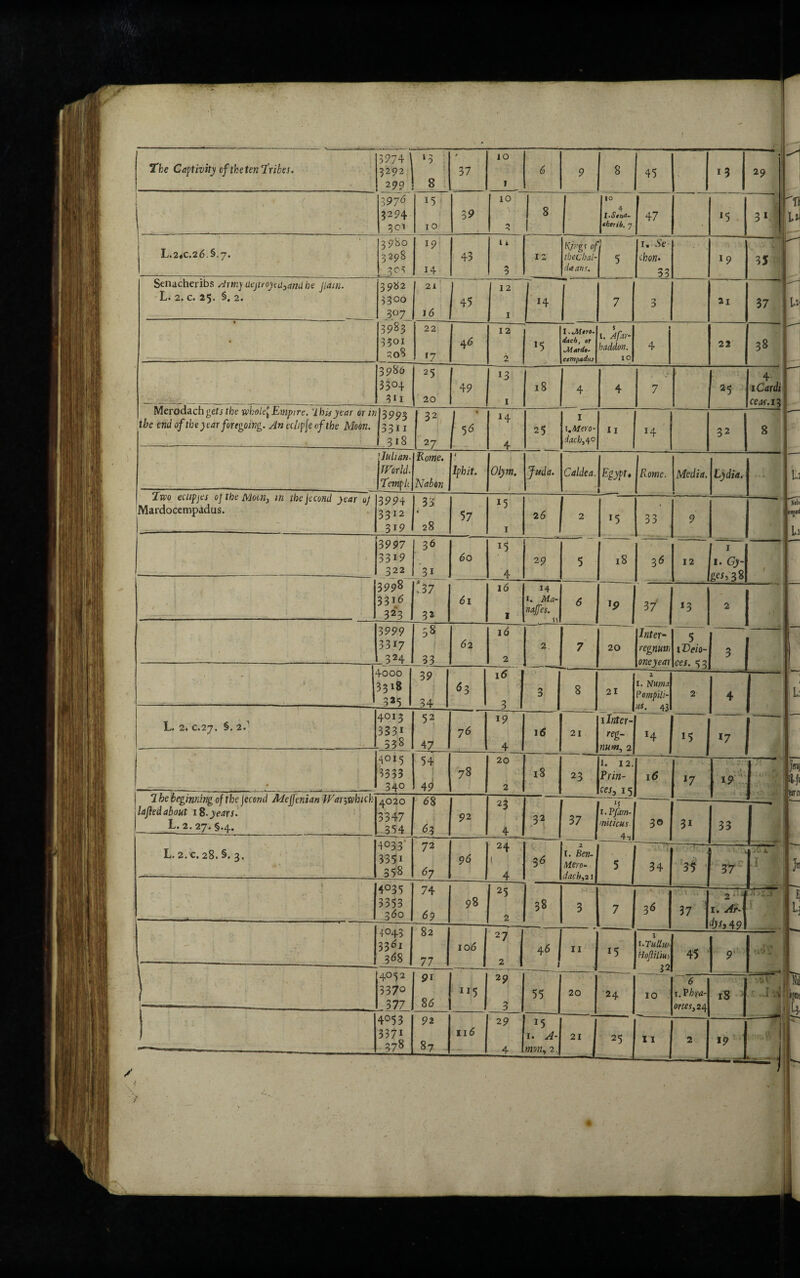 The Captivity of the ten Tribes. 3974 13 37 10 6 9 8 45 13 29
3292
299 8 1
3976 15 39 10 8 10 47 15 31
3294 4
301 10 3 1.Sena-
cherib. 7
L.2.c.26.§.7. 3980 19 43 11 12 Kings of 5 1. Se- 19 35
3298 the Chal- thon.
305 14 3 dæans. 33
Senacheribs Army destroyed, and he slain. 3982 21 45 12 14 7 3 21 37
L. 2. c. 25. §. 2. 3300
307 16 1
3983 22 46 12 15 1.Mero- 1. Asar- 4 22 38
3301 dach, or haddon.
308 17 2 Mardo- 10
cempadus
3986 25 49 13 18 4 4 7 25 4
3304 1 Cardi
311 20 1 ceas. 13
Merodach gets the whole Empire. This year or in 3993 32 56 14 25 1 11 14 32 8
the end of the year foregoing. An eclipse of the Moon. 3311 1.Mero-
318 27 4 dach, 40
Iulian. Rome. Iphit. Olym. Juda. Caldea. Egypt. Rome. Media. Lydia.
World.
Temple Nabon
Two eclipses of the Moon, in the second year of 3994 33 57 15 26 2 15 33 9
Mardocempadus. 3312
319 28 1
3997 36 60 15 29 5 18 36 12 1
1. Gy-
322 31 4 ges, 38
3998 37 61 16 14 6 19 37 13 2
3316 1. Ma-
323 32 1 nasses.
3999 38 62 16 2 7 20 Inter- 5 3
3317 regnum 1 Deio-
324 33 2 one year ces. 53
4000 39 63 16 3 8 21 2 2 4
3318 1. Numa
325 34 3 Pompili-
us. 43
L. 2. c.27. §. 2. 4013 52 76 19 16 21 1 Inter- 14 15 17
3331 reg-
338 47 4 num, 2
4015 54 78 20 18 23 1. 12. 16 17 19
3333 Prin-
340 49 2 ces, 15
The beginning of the second Messenian War, which 4020 68 92 23 32 37 15 30 31 33
lasted about 18. years. 3347 1.Psam-
L. 2. 27. §.4. 354 63 4 miticus
L. 2. c. 28. §. 3. 4033 72 96 24 36 2 5 34 35 37
3351 1. Ben-
358 67 4 Mero-
dach, 21
4035 74 98 25 38 3 7 36 37 2
3353 1. Ar-
360 69 2 dys, 49
4043 82 106 27 46 11 15 3 45 9
3361 1.Tullus
368 77 2 Hostilius
32
4052 91 115 29 55 20 24 10 6 18
3370 1.Phra-
377 86 3 ortes, 24
4053 92 116 29 15 21 25 11 2 19
3371 1. A-
378 87 4 mon, 2.